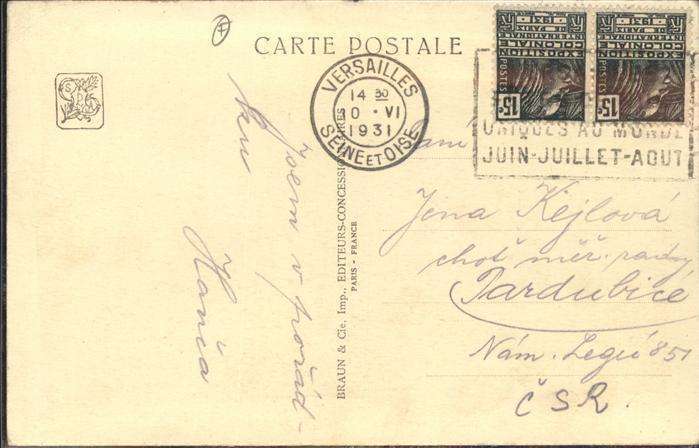 CARTE POSTALE
VERSAILLES
14 30
10 · VI
1931
SEINE ET OISE
UNIQUES AU MONDE
JUIN-JUILLET-AOUT
1931
EXPOSITION
COLONIALE
INTERNATIONALE
POSTES
15
1931
EXPOSITION
COLONIALE
INTERNATIONALE
POSTES
15
BRAUN & Cie, Imp., EDITEURS-CONCESSIONNAIRES
PARIS - FRANCE
Jsem v pořád-
ku
Hanča
Paní
Jena Kejlová
choť měř. rady
Pardubice
Nám. Legií 851
ČSR.